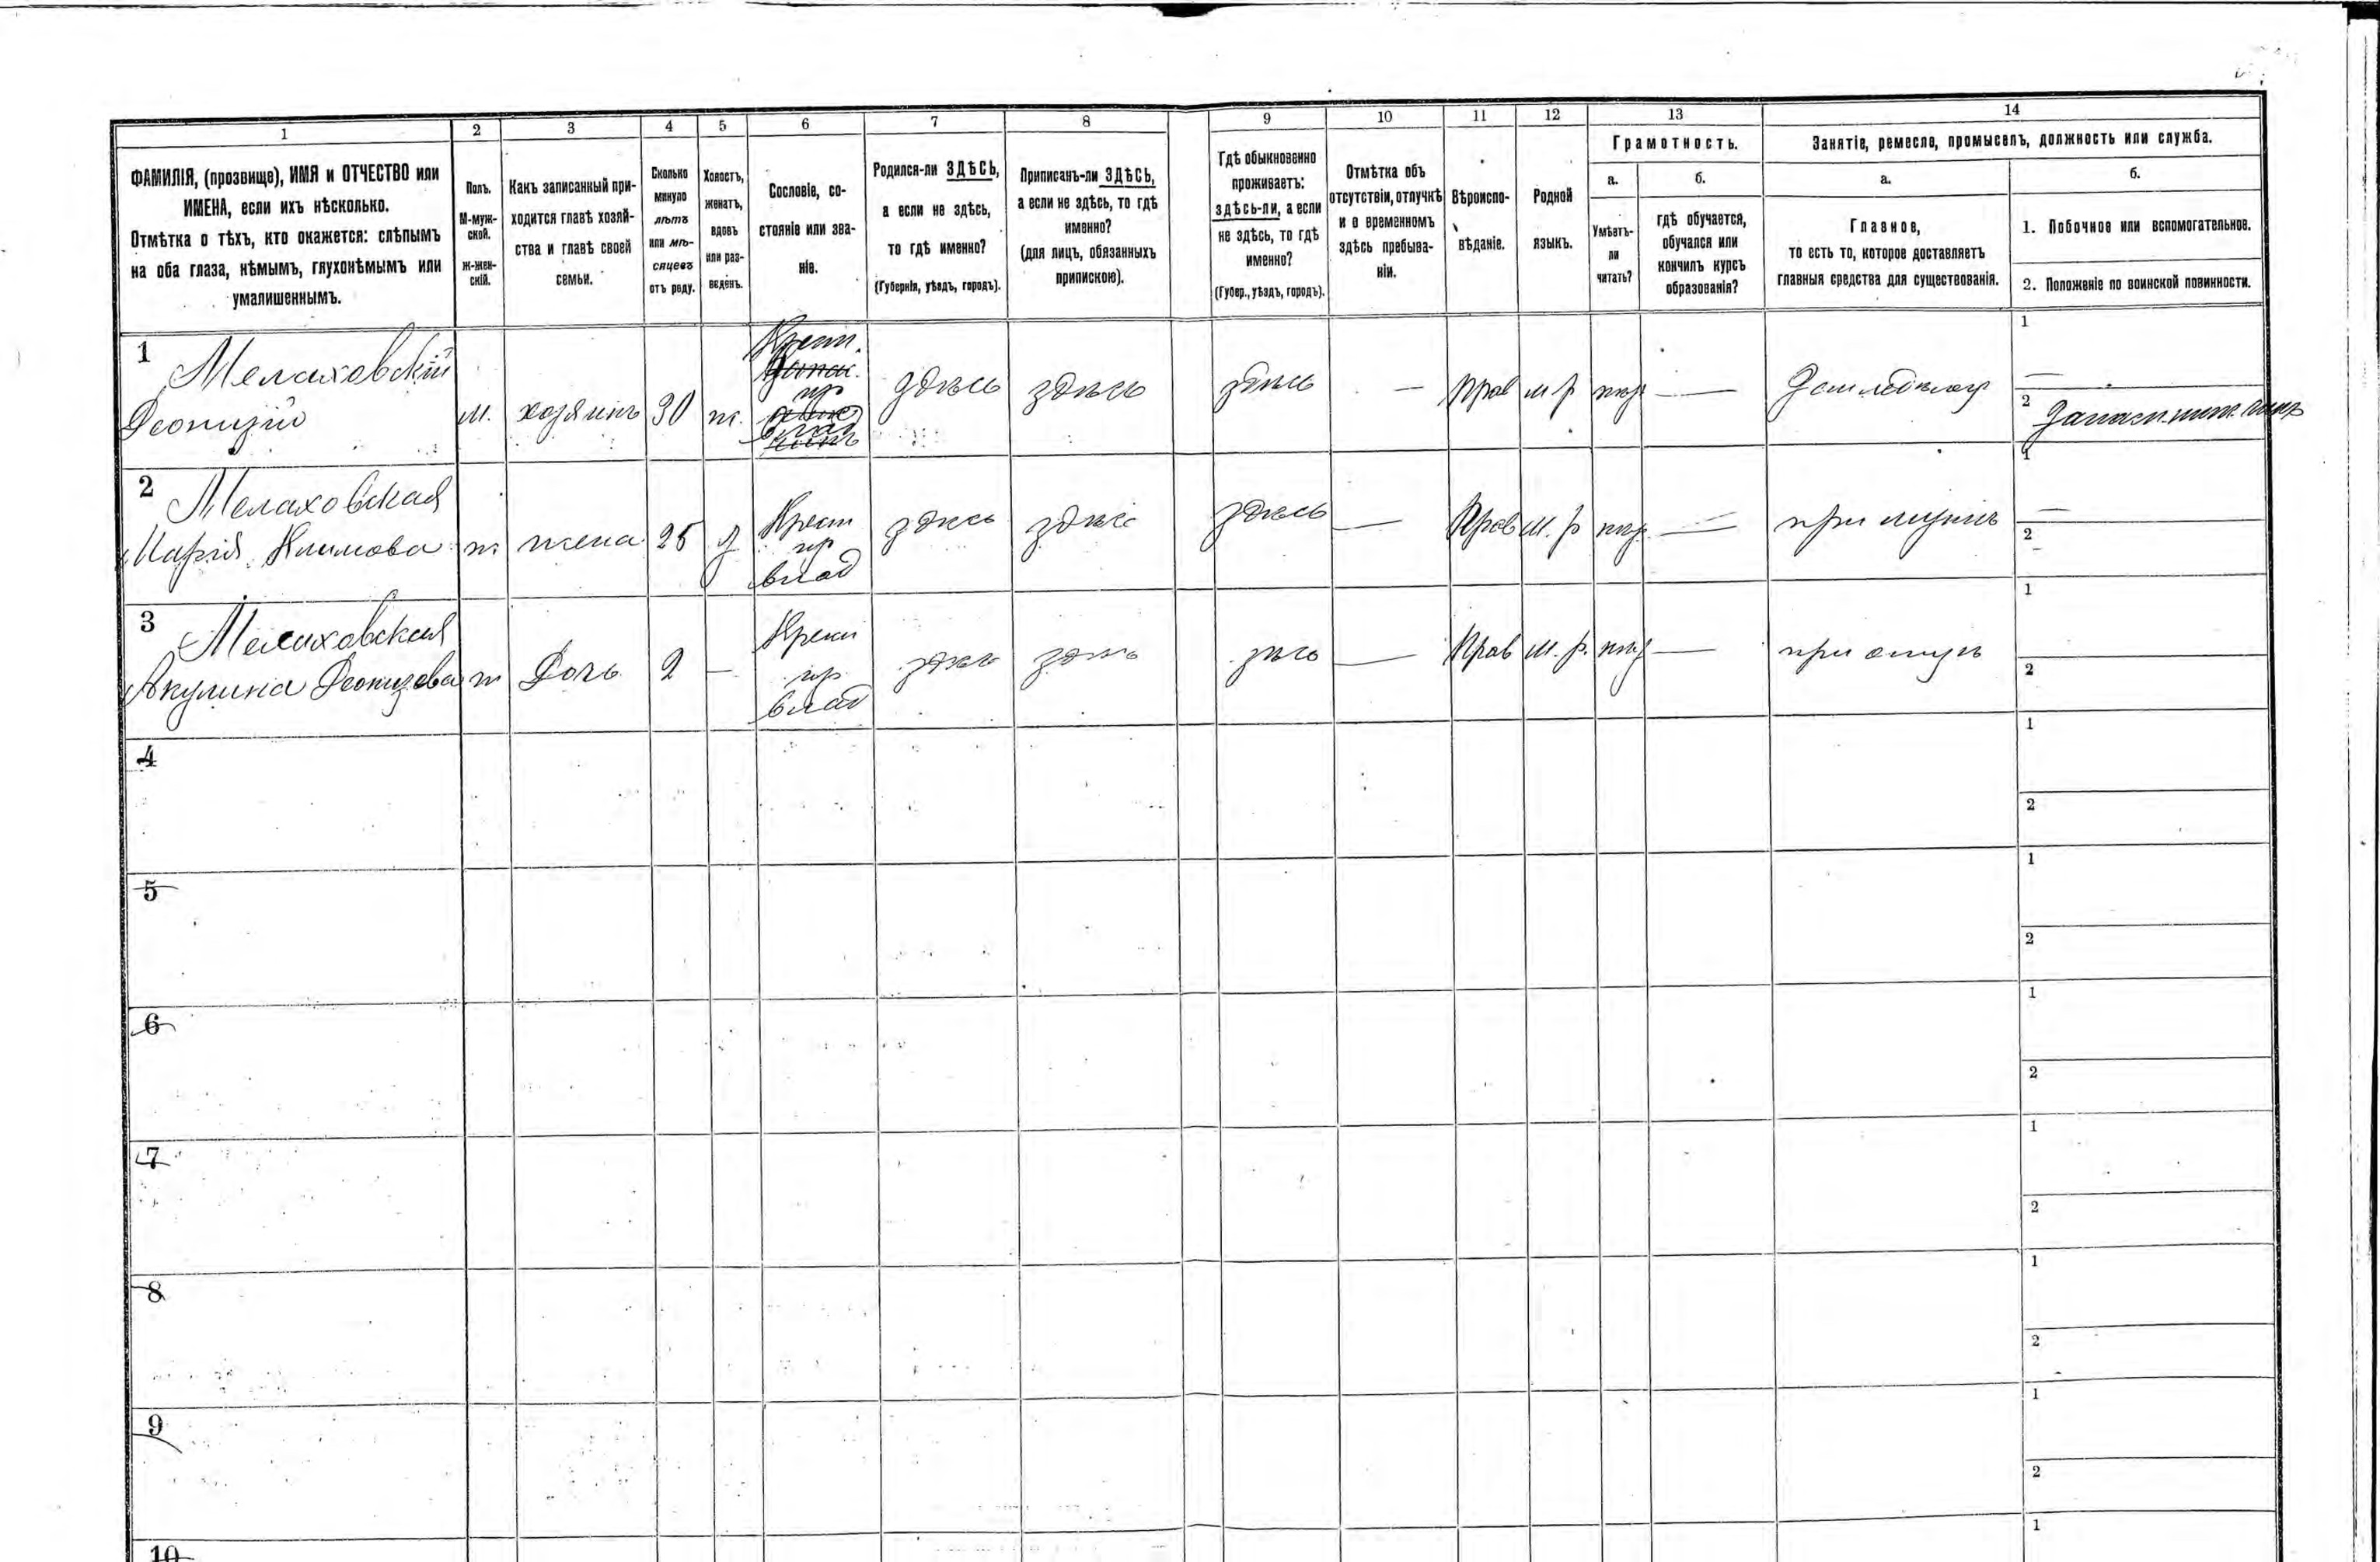 1
2
3
4
5
6
7
8
9
10
11
12
13
14
ФАМИЛІЯ, (прозвище), ИМЯ и ОТЧЕСТВО или
ИМЕНА, если ихъ нѣсколько.
Отмѣтка о тѣхъ, кто окажется: слѣпымъ
на оба глаза, нѣмымъ, глухонѣмымъ или
умалишеннымъ.
Полъ.
М-муж-
ской.
Ж-жен-
скій.
Какъ записанный при-
ходится главѣ хозяй-
ства и главѣ своей
семьи.
Сколько
минуло
лѣтъ
или мѣ-
сяцевъ
отъ роду.
Холостъ,
женатъ,
вдовъ
или раз-
веденъ.
Сословіе, со-
стояніе или зва-
ніе.
Родился-ли ЗДѢСЬ,
а если не здѣсь,
то гдѣ именно?
(Губернія, уѣздъ, городъ).
Приписанъ-ли ЗДѢСЬ,
а если не здѣсь, то гдѣ
именно?
(для лицъ, обязанныхъ
припискою).
Гдѣ обыкновенно
проживаетъ:
здѣсь-ли, а если
не здѣсь, то гдѣ
именно?
(Губер., уѣздъ, городъ).
Отмѣтка объ
отсутствіи, отлучкѣ
и о временномъ
здѣсь пребыва-
ніи.
Вѣроиспо-
вѣданіе.
Родной
языкъ.
Грамотность.
а.
Умѣетъ-
ли
читать?
б.
гдѣ обучается,
обучался или
кончилъ курсъ
образованія?
Занятіе, ремесло, промыселъ, должность или служба.
а.
Главное,
то есть то, которое доставляетъ
главныя средства для существованія.
б.
1. Побочное или вспомогательное.
2. Положеніе по воинской повинности.
1
Мелаховскій
Леонизій
м.
хозяинъ
30
ж.
Крест.
пр
влад
здѣсь
здѣсь
здѣсь
—
Прав
м р
—
1
—
2
2
Мелаховская
Марія Климова
ж
жена
25
з
Крест
пр
влад
здѣсь
здѣсь
здѣсь
—
Прав
м. р
—
при мужѣ
1
—
2
3
Мелаховская
Акулина Леонизова
ж
Дочь
2
—
Крест
пр
влад
здѣсь
здѣсь
—
Прав
м. р.
—
при отцѣ
1
2
4
1
2
5
1
2
6
1
2
7
1
2
8
1
2
9
1
2
10
1